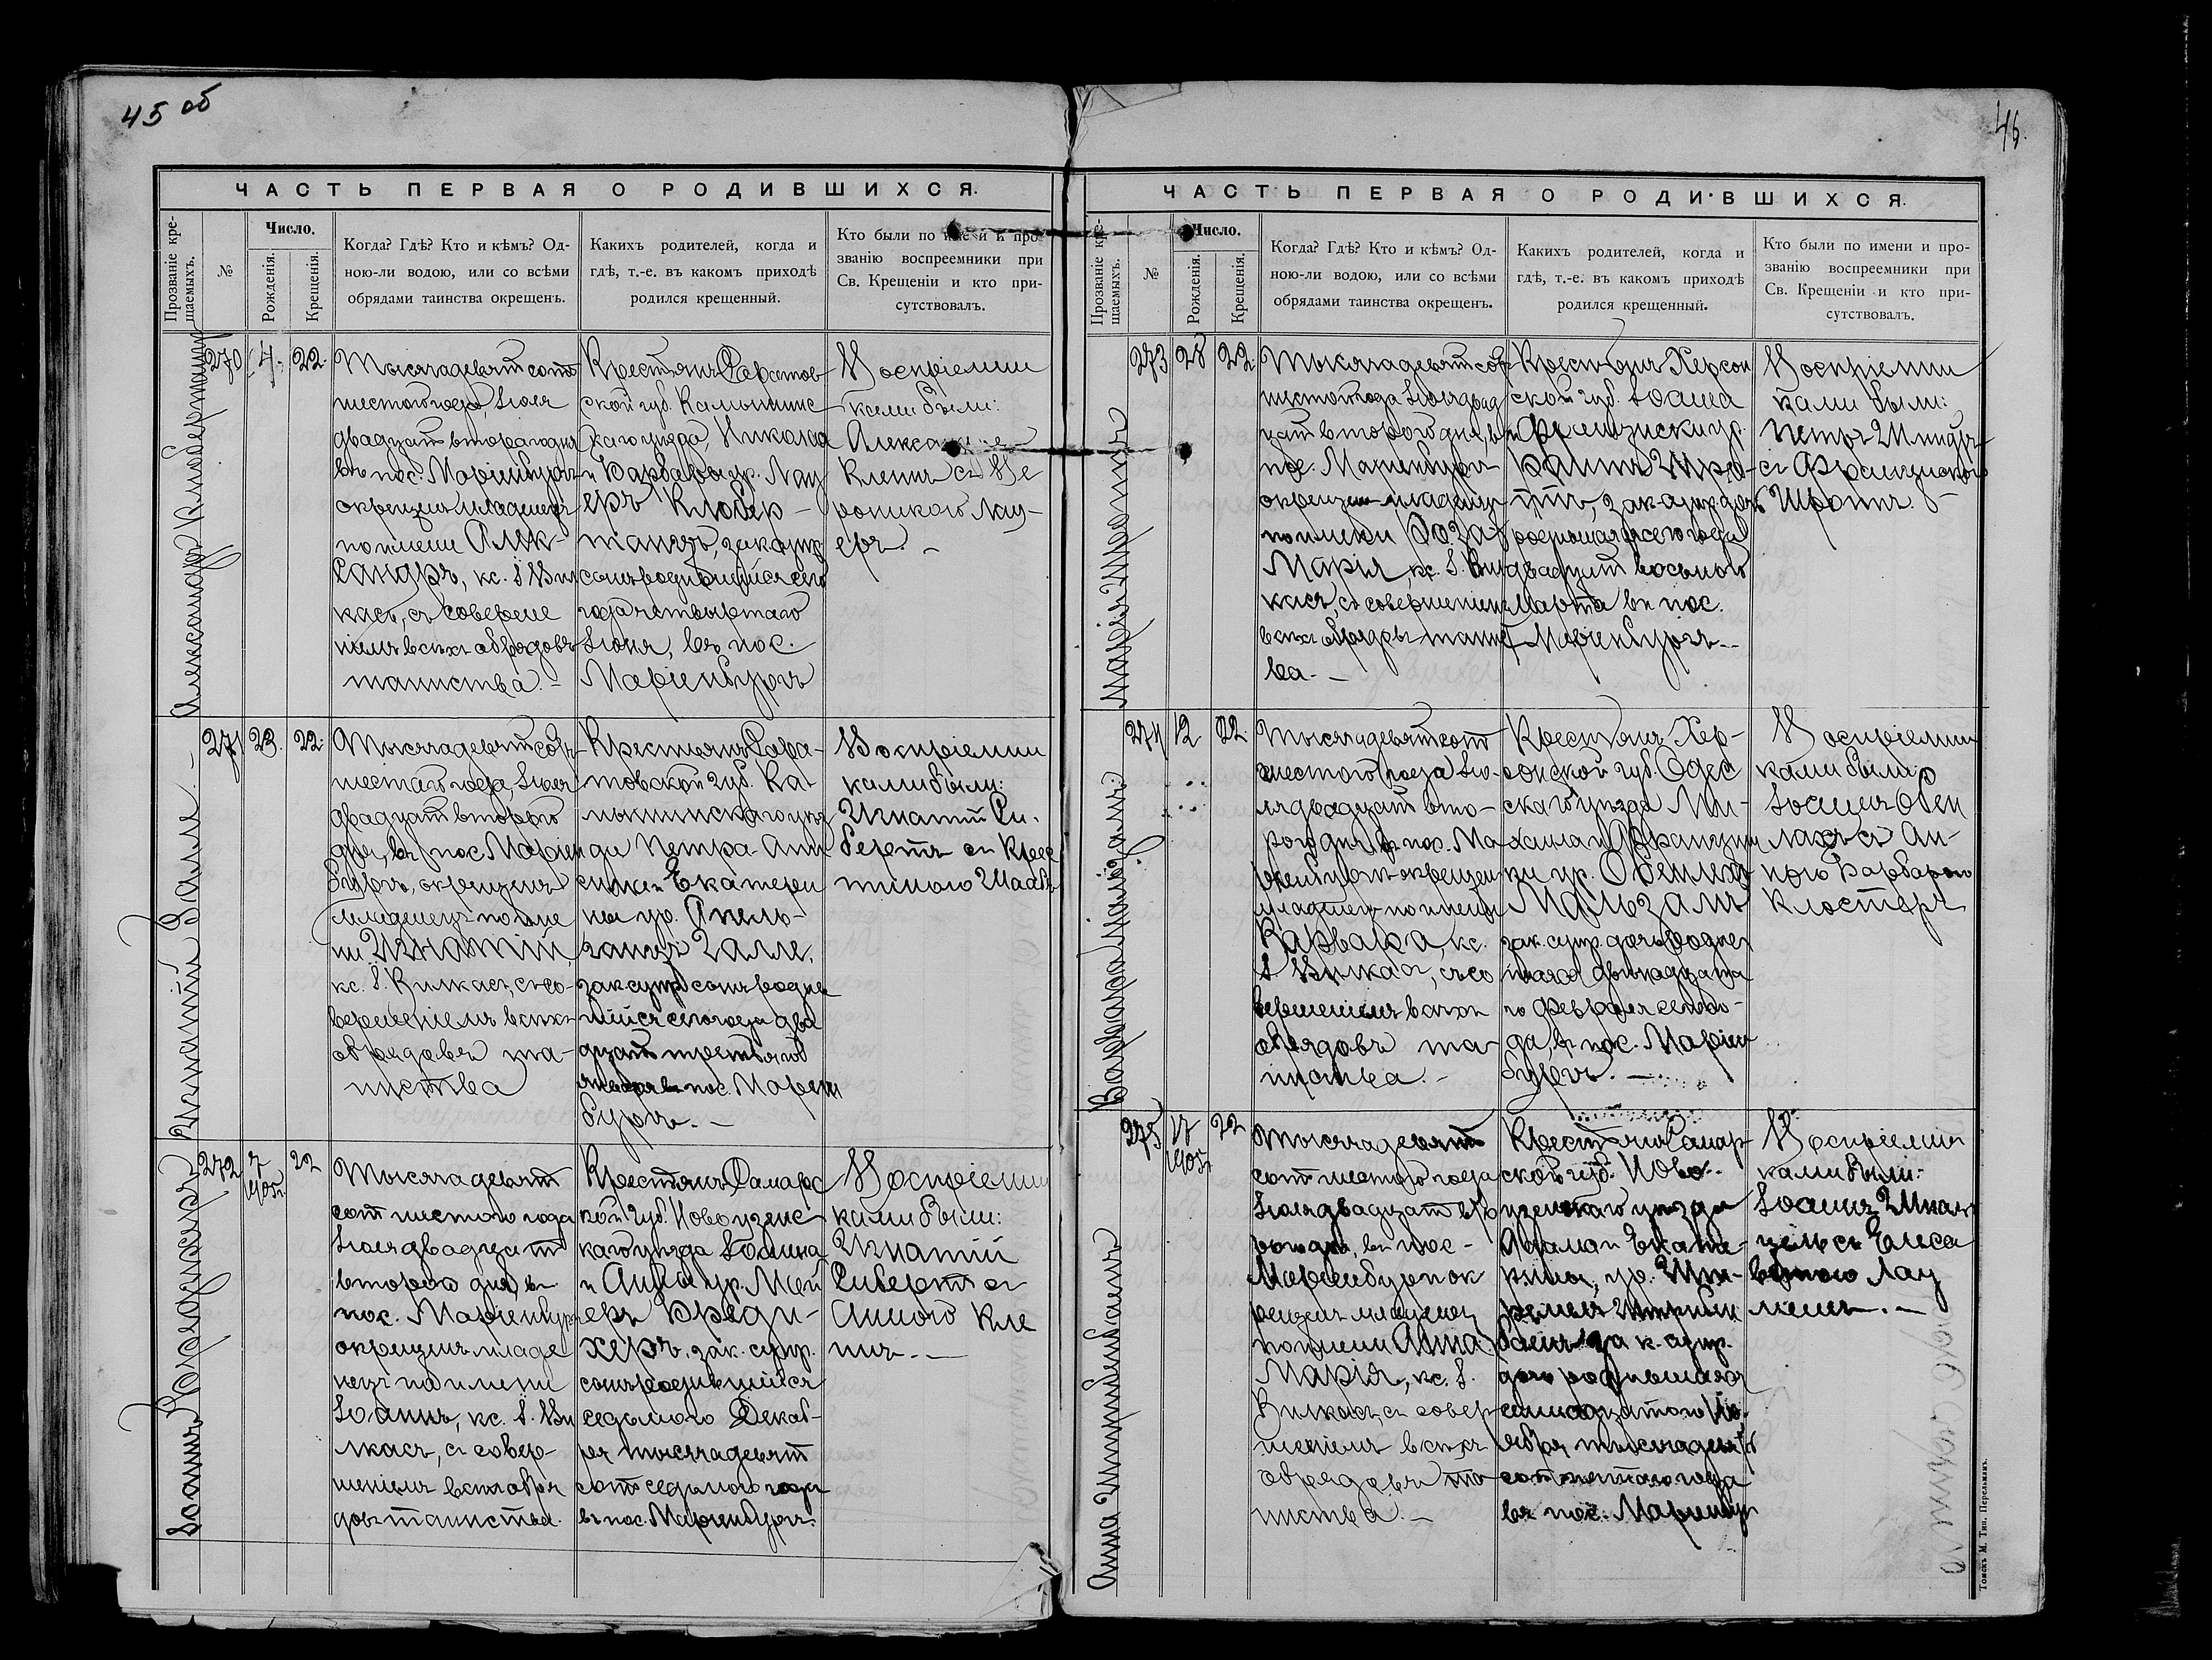 45 об
ЧАСТЬ ПЕРВАЯ О РОДИВШИХСЯ.
Прозваніе кре-
щаемыхъ.
№
Число.
Рожденія.
Крещенія.
Когда? Гдѣ? Кто и кѣмъ? Од-
ною-ли водою, или со всѣми
обрядами таинства окрещенъ.
Какихъ родителей, когда и
гдѣ, т.-е. въ какомъ приходѣ
родился крещенный.
Кто были по имени и про-
званію воспреемники при
Св. Крещеніи и кто при-
сутствовалъ.
Александръ Клюберетанцъ
270
4.
22.
Тысяча девятьсотъ
шестого года, Іюля
двадцать второго дня
въ пос. Маріенбургъ
окрещенъ младенецъ
по имени Алек-
сандръ, кс. І. Вил
касъ, съ соверше
ніемъ всѣхъ обрядовъ
таинства. –
Крестьянъ Саратов
ской губ. Камышинс
каго уѣзда, Николая
и Варвары ур. Лау
еръ Клюбер-
танцъ, зак. супр.
сынъ родившійся сего
года четвертаго
Іюня, въ пос.
Маріенбургъ
Воспріемни
ками были:
Клеинъ съ Ве
роникою Лау-
еръ. –
Игнатій Галле. –
271
23.
22.
Тысяча девятьсотъ
шестаго года, Іюля
двадцать второго
дня, въ пос. Маріен
бургъ, окрещенъ
младенецъ по име
ни Игнатій,
кс. І. Вилкасъ, съ со-
вершеніемъ всѣхъ
обрядовъ та-
инства
Крестьянъ Сара-
товской губ. Ка-
мышинскаго уѣз
да Петра
и Екатери
ны ур.
Галле,
зак. супр. сынъ родив
шійся сего года два
дцать третьяго
января въ пос. Маріен
бургъ. –
Воспріемни
ками были:
Игнатій Ги-
бертъ съ Крис
тиною Шааб
Іоаннъ Бредихеръ
272
7
1905 г.
22
Тысяча девять
сотъ шестого года
Іюля двадцать
второго дня, въ
пос. Маріенбургъ
окрещенъ младе
нецъ по имени
Іоаннъ, кс. І. Ви
лкасъ, съ совер-
шеніемъ всѣхъ обря
довъ таинства.
Крестьянъ Самарс
кой губ. Новоузенс-
каго уѣзда Іоанна
и Анны ур. Меи
еръ Бреди-
херъ, зак. супр.
сынъ родившійся
седьмого Декаб-
ря тысяча девять
сотъ седьмого года
въ пос. Маріенбургъ.
Воспріемни
ками были:
Игнатій
Гибертъ съ
Анною Кле
инъ. –
46.
ЧАСТЬ ПЕРВАЯ О РОДИВШИХСЯ.
Прозваніе кре-
щаемыхъ.
№
Число.
Рожденія.
Крещенія.
Когда? Гдѣ? Кто и кѣмъ? Од-
ною-ли водою, или со всѣми
обрядами таинства окрещенъ.
Какихъ родителей, когда и
гдѣ, т.-е. въ какомъ приходѣ
родился крещенный.
Кто были по имени и про-
званію воспреемники при
Св. Крещеніи и кто при-
сутствовалъ.
273
28
22.
Тысяча девятьсотъ
шестого года Іюля двад
цать второго дня, въ
пос. Маріенбургъ
окрещенъ младенецъ
по имени Роза-
Марія, кс. І. Вил
касъ, съ совершеніемъ
всѣхъ обрядовъ таинст
ва. –
Крестьянъ Херсон
ской губ. Іоанна
и Франциски ур.
зак. супр. дочь
родившаяся сего года
двадцать восьмого
Марта въ пос.
Маріенбургъ. –
Воспріемни
ками были:
Петръ Шмидтъ
съ Францискою
Варвара Мальзамъ
274
12
22.
Тысяча девятьсотъ
шестого года Ію-
ля двадцать вто-
рого дня, въ пос. Ма
ріенбургъ окрещенъ
младенецъ по имени
Варвара, кс.
І. Вилкасъ, съ со
вершеніемъ всѣхъ
обрядовъ та-
инства. –
Крестьянъ Хер-
сонской губ. Одес
скаго уѣзда Ми-
хаила и Францис
ки ур. Обенлахъ
Мальзамъ
зак. супр. дочь родив
шаяся двѣнадцата
го февраля сего го-
да, въ пос. Маріен
бургъ. –
Воспріемни
ками были:
Іоаннъ Обен
лахъ съ Ан-
ною Варварою
Клостеръ
275
17
1905 г.
22
Тысяча девять
сотъ шестого года
Іюля двадцать вто
рого дня, въ пос-
Маріенбургъ ок
рещенъ младенецъ
по имени Анна
Марія, кс. І.
Вилкасъ, съ совер
шеніемъ всѣхъ
обрядовъ та
инства. –
Крестьянъ Самар
ской губ. Ново-
узенскаго уѣзда
Адама и Екате-
рины, ур.
зак. супр.
дочь родившаяся
семнадцатого Но-
ября тысяча девять
сотъ пятаго года
въ пос. Маріенбургъ
Воспріемни
ками были:
Іоаннъ
съ Елиса
ветою Лау
Томскъ М. Тип. Перельманъ.